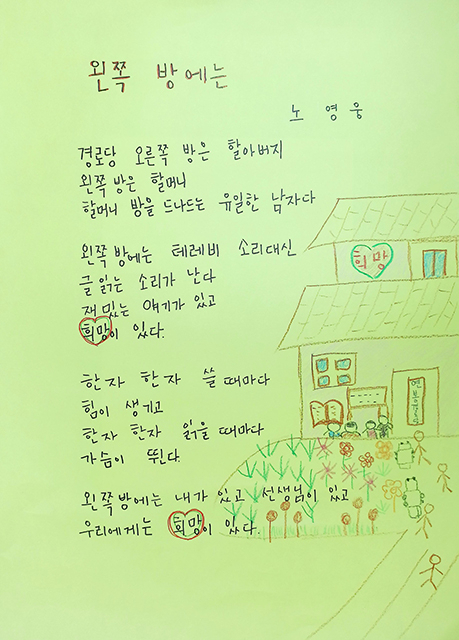 왼쪽 방에는
노 영 웅
경로당 오른쪽 방은 할아버지
왼쪽 방은 할머니
할머니 방을 드나드는 유일한 남자다
왼쪽 방에는 테레비 소리대신
글 읽는 소리가 난다
재밌는 얘기가 있고
희망이 있다.
한자 한자 쓸 때마다
힘이 생기고
한자 한자 읽을 때마다
가슴이 뛴다.
왼쪽 방에는 내가 있고 선생님이 있고
우리에게는 희망이 있다.
희망